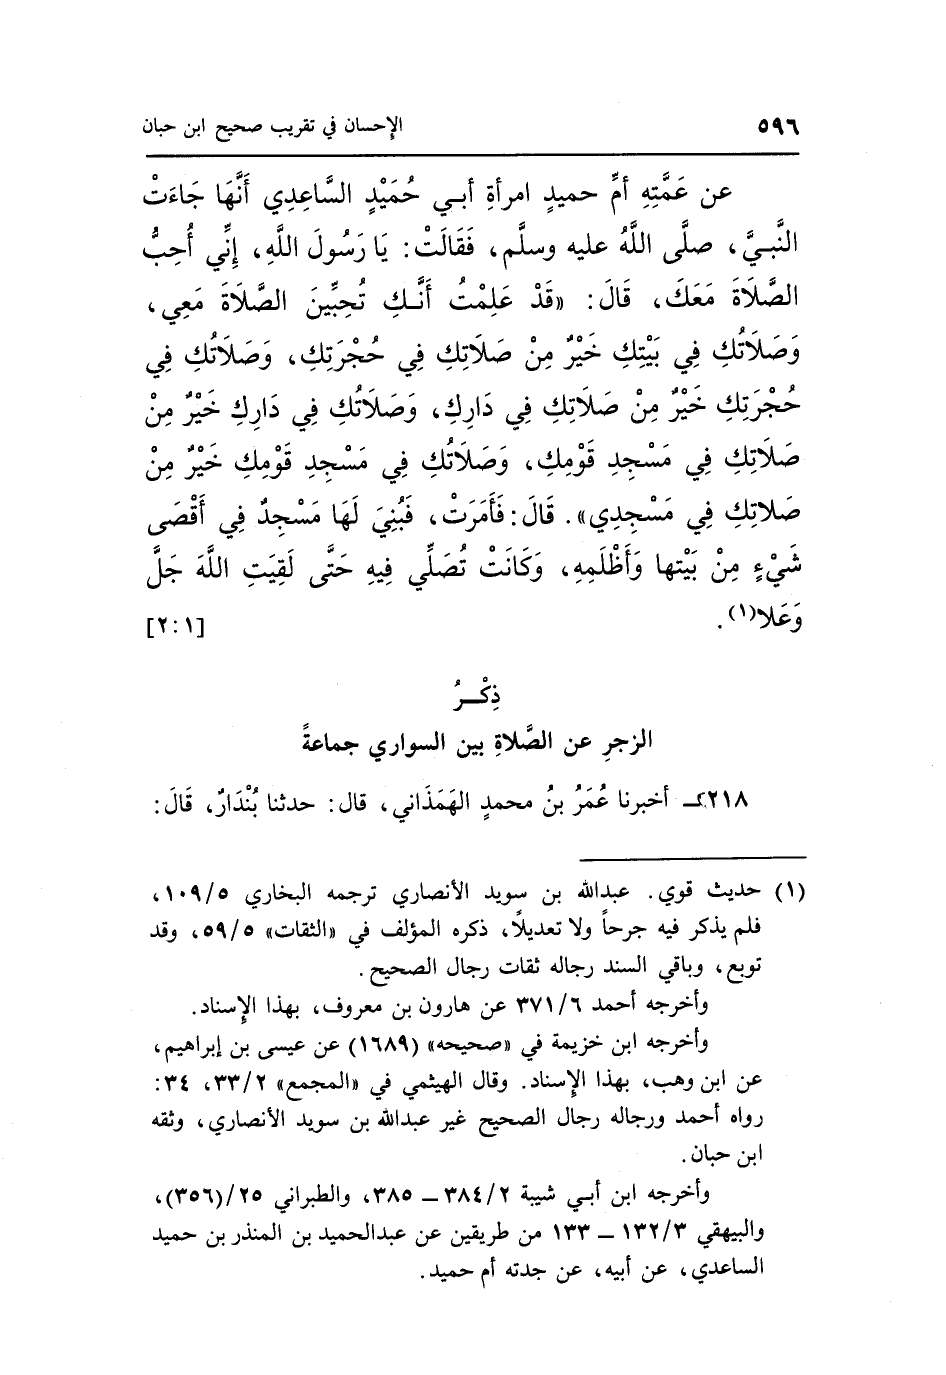 ٥٩٦ الإحسان في تقريب صحيح ابن حبان
عن عَمَّتِهِ أمِّ حميدٍ امرأةِ أبي حُمَيْدٍ السَّاعِدِي أَنَّهَا جَاءَتْ
النَّبيَّ، صلَّى اللَّهُ عليه وسلَّم، فَقَالَتْ: يَا رَسُولَ اللَّهِ، إِنِّي أُحِبُّ
الصَّلَاةَ مَعَكَ، قَالَ: «قَدْ عَلِمْتُ أَنَّكِ تُحِبِّينَ الصَّلَاةَ مَعِي،
وَصَلَاتُكِ فِي بَيْتِكِ خَيْرٌ مِنْ صَلَاتِكِ فِي حُجْرَتِكِ، وَصَلَاتُكِ فِي
حُجْرَتِكِ خَيْرٌ مِنْ صَلَاتِكِ فِي دَارِكِ، وَصَلَاتُكِ فِي دَارِكِ خَيْرٌ مِنْ
صَلَاتِكِ فِي مَسْجِدِ قَوْمِكِ، وَصَلَاتُكِ فِي مَسْجِدِ قَوْمِكِ خَيْرٌ مِنْ
صَلاتِكِ فِي مَسْجِدِي». قَالَ: فَأَمَرَتْ، فَبُنِيَ لَهَا مَسْجِدٌ فِي أَقْصَى
شَيْءٍ مِنْ بَيْتها وَأَظْلَمِهِ، وَكَانَتْ تُصَلِّي فِيهِ حَتَّى لَقِيَتِ اللَّهَ جَلَّ
وَعَلا(١). [٢:١]
ذِكْرُ
الزجرِ عن الصَّلاةِ بين السواري جماعةً
٢٢١٨ـ أخبرنا عُمَرُ بنُ محمدٍ الهَمَذَاني، قال: حدثنا بُنْدَارٌ، قَالَ:
(١) حديث قوي. عبدالله بن سويد الأنصاري ترجمه البخاري ١٠٩/٥،
فلم يذكر فيه جرحاً ولا تعديلًا، ذكره المؤلف في «الثقات» ٥٩/٥، وقد
توبع، وباقي السند رجاله ثقات رجال الصحيح.
وأخرجه أحمد ٣٧١/٦ عن هارون بن معروف، بهذا الإسناد.
وأخرجه ابن خزيمة في «صحيحه» (١٦٨٩) عن عيسى بن إبراهيم،
عن ابن وهب، بهذا الإسناد. وقال الهيثمي في «المجمع» ٣٣/٢، ٣٤:
رواه أحمد ورجاله رجال الصحيح غير عبدالله بن سويد الأنصاري، وثقه
ابن حبان.
وأخرجه ابن أبي شيبة ٣٨٤/٢ ــ ٣٨٥، والطبراني ٢٥/(٣٥٦)،
والبيهقي ١٣٢/٣ ــ ١٣٣ من طريقين عن عبدالحميد بن المنذر بن حميد
الساعدي، عن أبيه، عن جدته أم حميد.